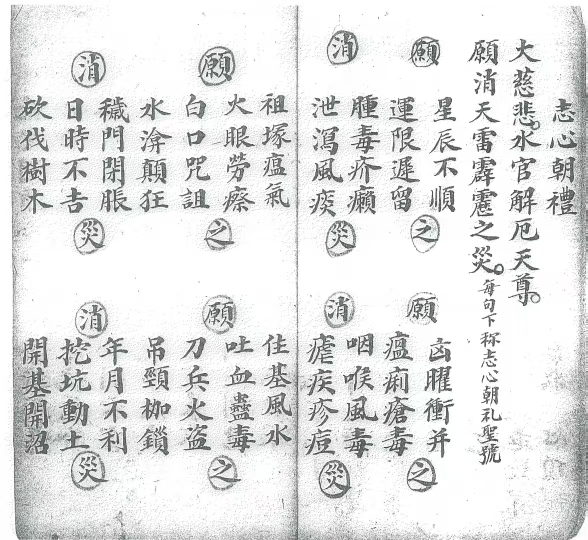 志心朝禮
大慈悲水官解厄天尊
願消天雷霹靂之災 每句下称志心朝礼聖號
星辰不順 凶曜衝并
願 運限遲留 之 願 瘟痢瘡毒 之
腫毒疥癩 咽喉風毒
消 泄瀉風痰 災 消 瘧疾疹痘 災
祖塚瘟氣 住基風水
火眼勞瘵 吐血蠱毒
願 白口咒詛 之 願 刀兵火盜 之
水渰顛狂 吊頸枷鎖
穢門閉脹 年月不利
消 日時不吉 災 消 挖坑動土 災
砍伐樹木 開基開沼